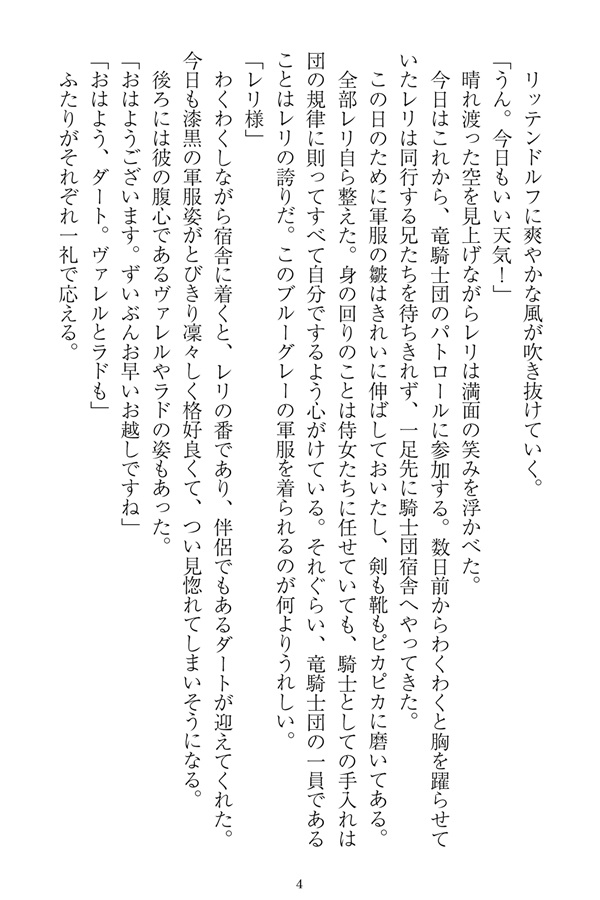 リッテンドルフに爽やかな風が吹き抜けていく。
「うん。今日もいい天気！」
晴れ渡った空を見上げながらレリは満面の笑みを浮かべた。
今日はこれから、竜騎士団のパトロールに参加する。数日前からわくわくと胸を躍らせて
いたレリは同行する兄たちを待ちきれず、一足先に騎士団宿舎へやってきた。
この日のために軍服の皺はきれいに伸ばしておいたし、剣も靴もピカピカに磨いてある。
全部レリ自ら整えた。身の回りのことは侍女たちに任せていても、騎士としての手入れは
団の規律に則ってすべて自分でするよう心がけている。それぐらい、竜騎士団の一員である
ことはレリの誇りだ。このブルーグレーの軍服を着られるのが何よりうれしい。
「レリ様」
わくわくしながら宿舎に着くと、レリの番であり、伴侶でもあるダートが迎えてくれた。
今日も漆黒の軍服姿がとびきり凜々しく格好良くて、つい見惚れてしまいそうになる。
後ろには彼の腹心であるヴァレルやラドの姿もあった。
「おはようございます。ずいぶんお早いお越しですね」
「おはよう、ダート。ヴァレルとラドも」
ふたりがそれぞれ一礼で応える。
4